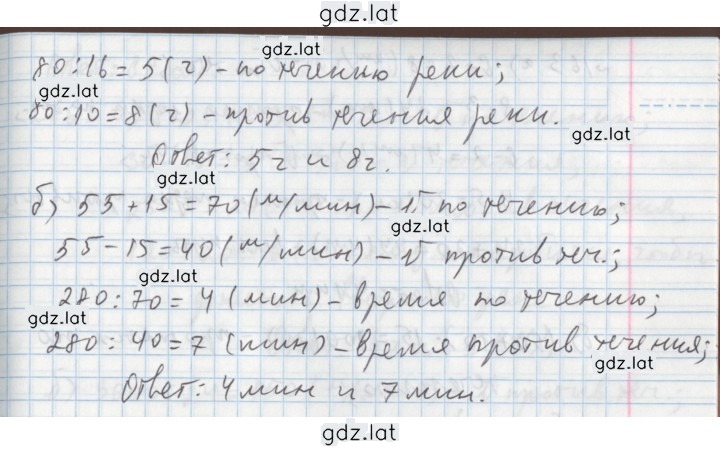 gdz.lat
gdz.lat
80:16=5(ч)-по течению реки;
gdz.lat
80:10=8(ч)-против течения реки.
gdz.lat
Ответ: 5ч и 8ч.
gdz.lat
б) 55+15=70(м/мин)-v по течению;
gdz.lat
55-15=40(м/мин)-v против теч.;
gdz.lat
280:70=4(мин)-время по течению;
gdz.lat
280:40=7(мин)-время против течения;
gdz.lat
Ответ: 4 мин и 7 мин.
gdz.lat